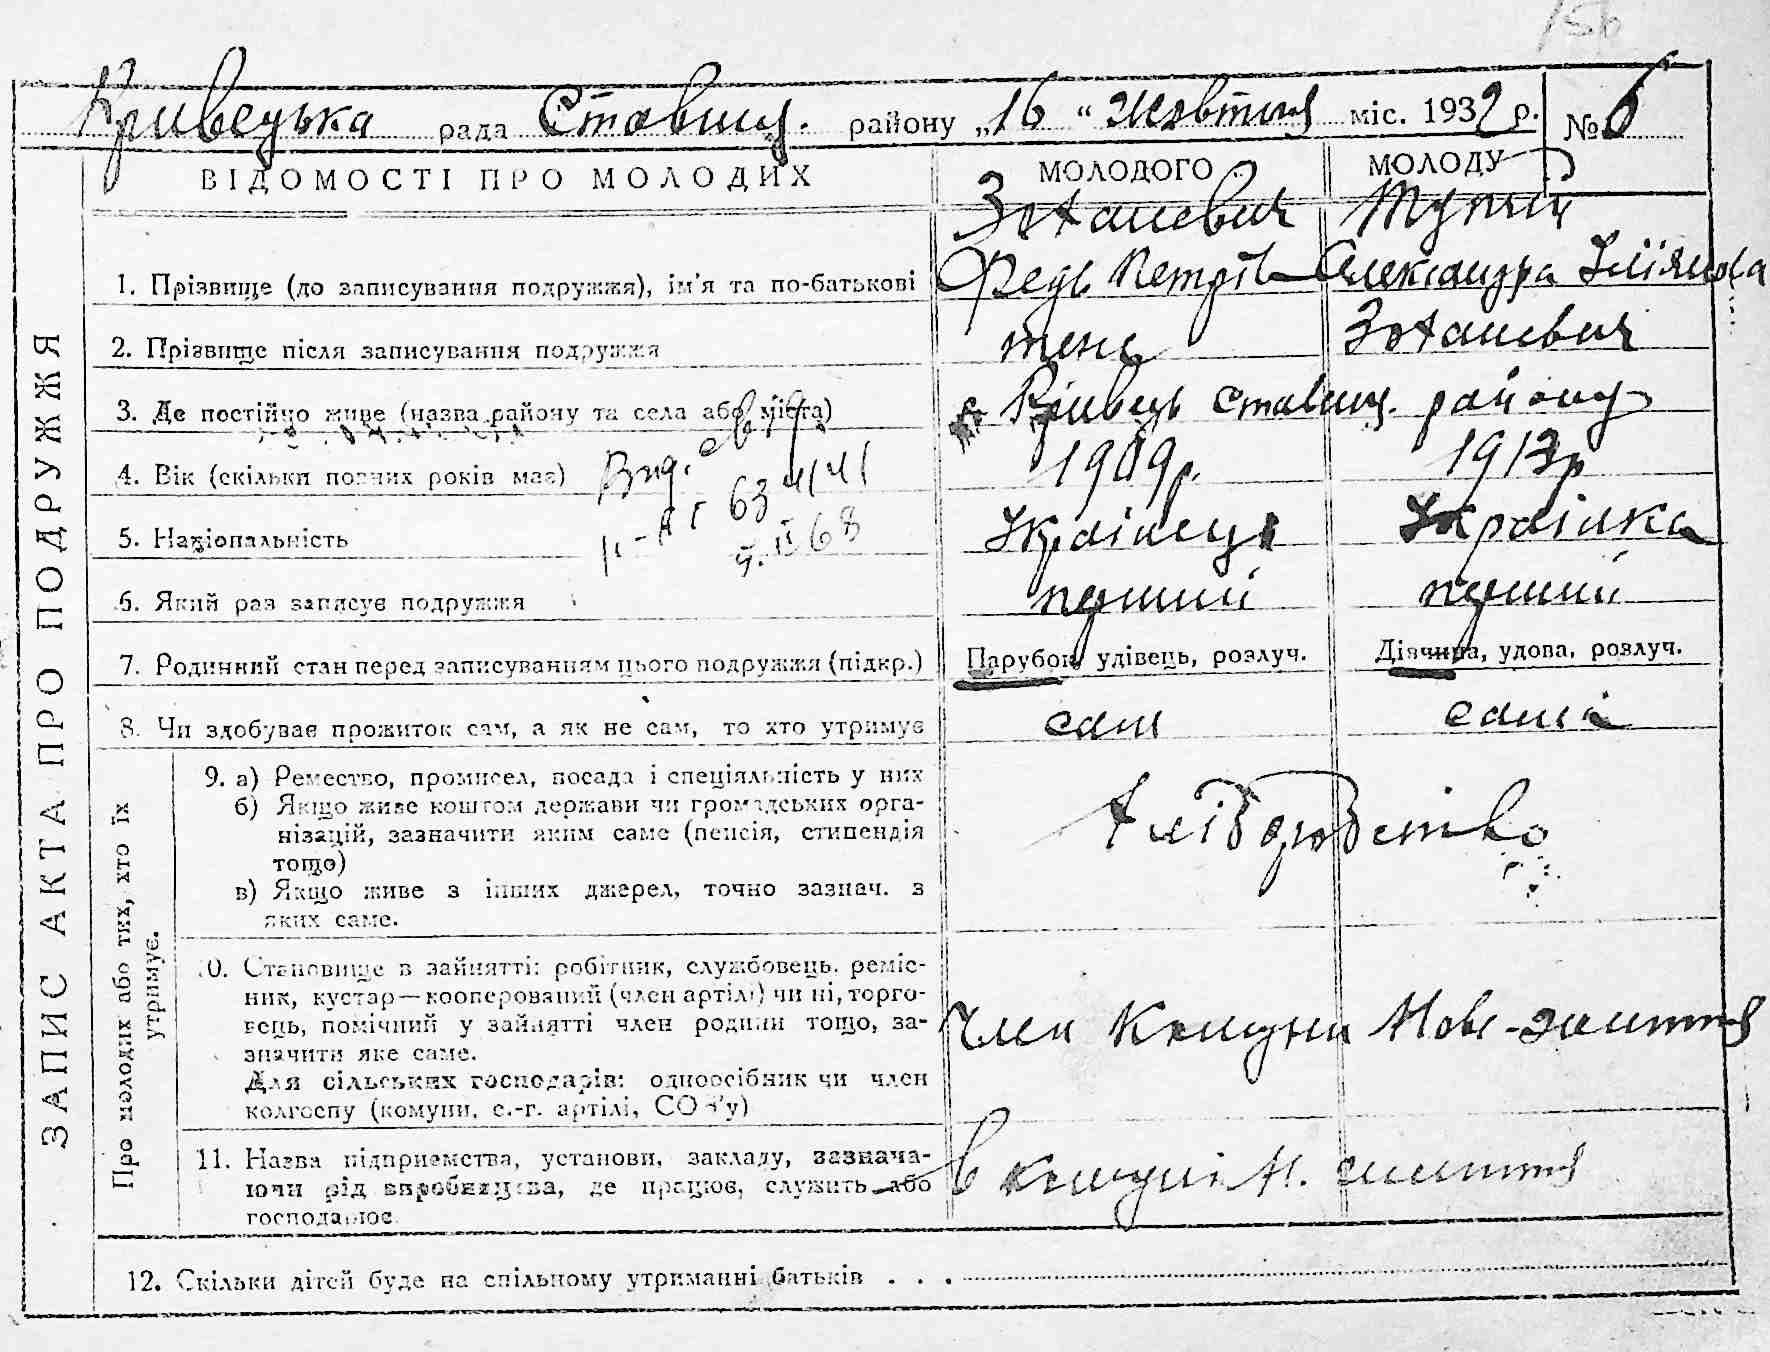 156
Кривецька рада Ставищ. району „16“ Жовтня міс. 1932 р. № 6
ВІДОМОСТІ ПРО МОЛОДИХ
МОЛОДОГО
МОЛОДУ
1. Прізвище (до записування подружжя), ім'я та по-батькові
Федь Петрів
Александра
2. Прізвище після записування подружжя
3. Де постійно живе (назва району та села або міста)
Кривець Ставищ. району
4. Вік (скільки повних років має)
1909р.
1913р
5. Національність
Українець
Українка
6. Який раз записує подружжя
перший
перший
7. Родинний стан перед записуванням цього подружжя (підкр.)
Парубок, удівець, розлуч.
Дівчина, удова, розлуч.
8. Чи здобуває прожиток сам, а як не сам, то хто утримує
сам
сама
ЗАПИС АКТА ПРО ПОДРУЖЖЯ
Про молодих або тих, хто їх утримує.
9. а) Ремество, промисел, посада і спеціяльність у них
б) Якщо живе коштом держави чи громадських орга-
нізацій, зазначити яким саме (пенсія, стипендія
тощо)
в) Якщо живе з інших джерел, точно зазнач. з
яких саме.
Хліборобство
10. Становище в зайнятті: робітник, службовець, реміс-
ник, кустар—кооперований (член артілі) чи ні, торго-
вець, помічний у зайнятті член родини тощо, за-
значити яке саме.
Для сільських господарів: одноосібник чи член
колгоспу (комуни, с.-г. артілі, СОЗ'у)
Член Комуни Нове-життя
11. Назва підприємства, установи, закладу, зазнача-
ючи рід виробництва, де працює, служить або
господарює
в комуні Н. життя
12. Скільки дітей буде на спільному утриманні батьків . . .